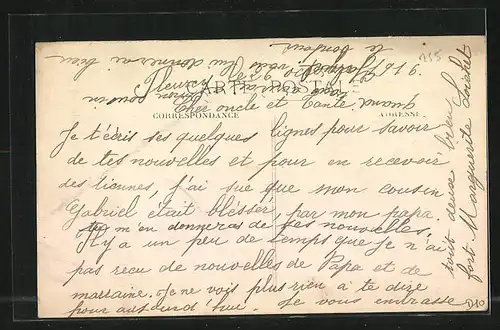 CARTE POSTALE
CORRESPONDANCE
ADRESSE
cher oncle et Tante
Je t'écris ses quelques lignes pour savoir
de tes nouvelles et pour en recevoir
des tiennes, j'ai sue que mon cousin
Gabriel était blesser, par mon papa.
tu m'en donneras de ses nouvelles,
Il y a un peu de temps que Je n'ai
pas recu de nouvelles de Papa et de
marraine. Je ne vois plus rien à te dire
pour aujourd'hui. Je vous embrasse
tout deux bien
fort Marguerite
lui donnerai bien
le bonjour